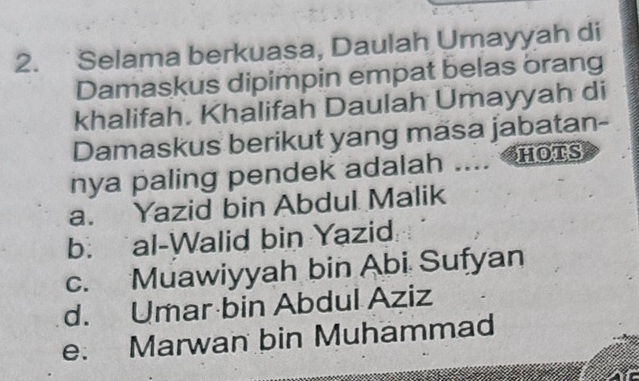 2. Selama berkuasa, Daulah Umayyah di
Damaskus dipimpin empat belas orang
khalifah. Khalifah Daulah Umayyah di
Damaskus berikut yang masa jabatan-
nya paling pendek adalah .... HOTS
a. Yazid bin Abdul Malik
b. al-Walid bin Yazid
c. Muawiyyah bin Abi Sufyan
d. Umar bin Abdul Aziz
e. Marwan bin Muhammad